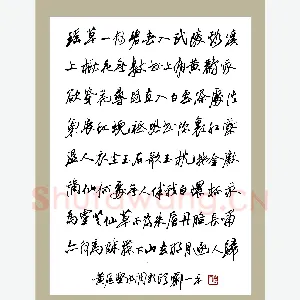 瑶草一何碧春入武陵溪溪
上桃花无数枝上有黄鹂我
欲穿花寻路直入白云深处浩
气展虹霓祗恐花深里红露
湿人衣坐玉石敧玉枕拂金徽
谪仙何处无人伴我白螺杯我
为灵芝仙草不为朱唇丹脸长啸
亦何为醉舞下山去明月逐人归
黄庭坚词水调歌头 刘一
Shufawang.CN